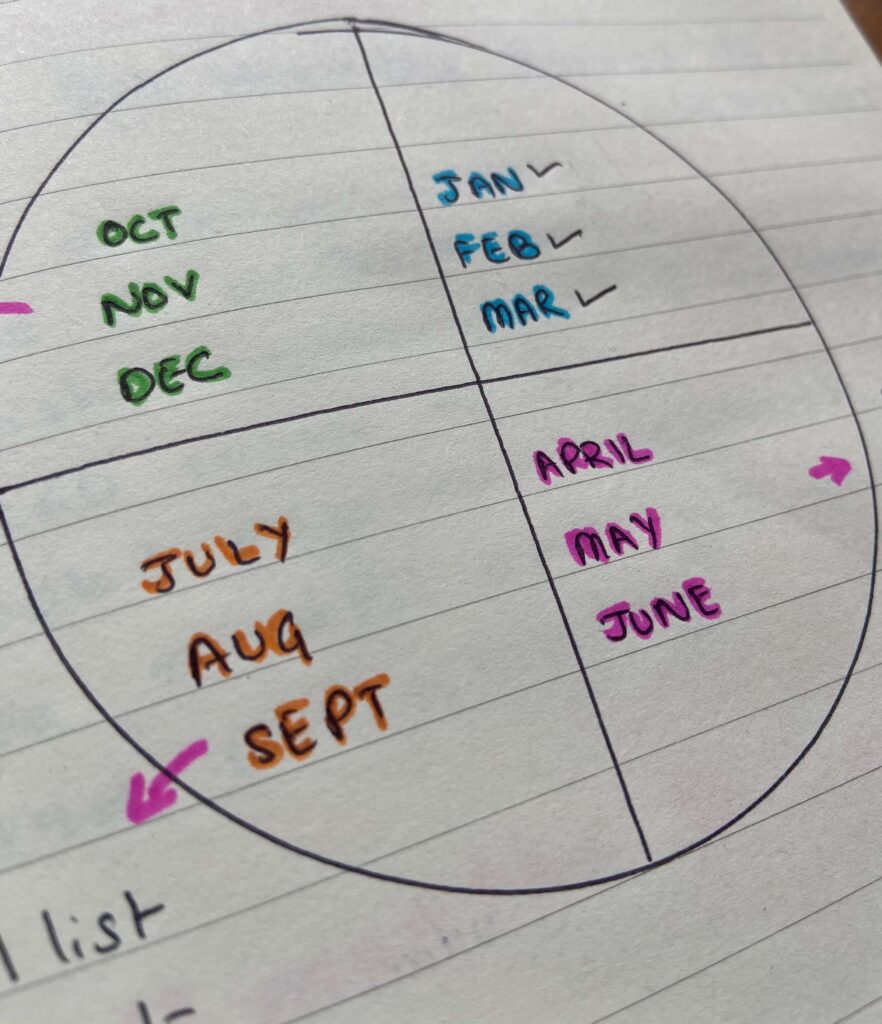 JAN ✓
FEB ✓
MAR ✓
APRIL
MAY
JUNE
JULY
AUG
SEPT
OCT
NOV
DEC
list